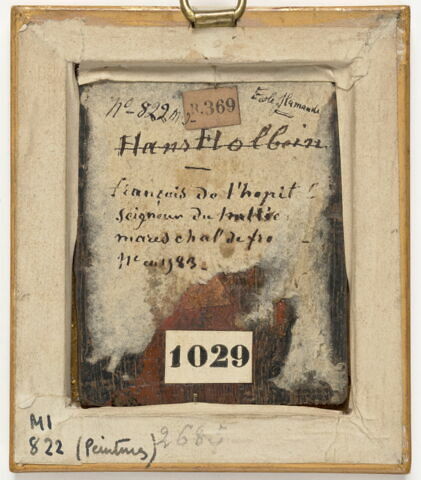 No 822 MI
R.369
Ecole flamande
Hans Holbein
françois de l'hopit
seigneur du hallie
mareschal de fra
Né en 1583
1029
MI
822 (Peintures)
268